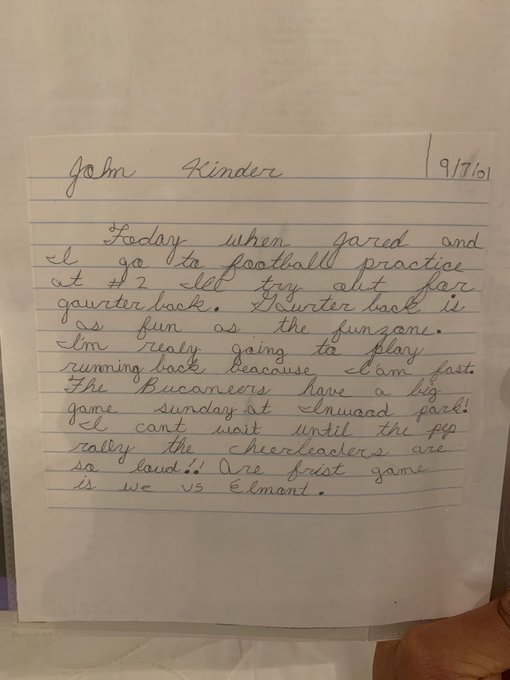 John Kinder 9/7/01
Today when Jared and
I go to football practice
at #2 Ill try out for
gaurter back. Gaurter back is
as fun as the funzone.
I'm realy going to play
running back beacause I am fast.
The Bucaneers have a big
game sunday at Inwood park!
I cant wait until the pep
rally the cheerleaders are
so loud!! Are frist game
is we vs Elmont.